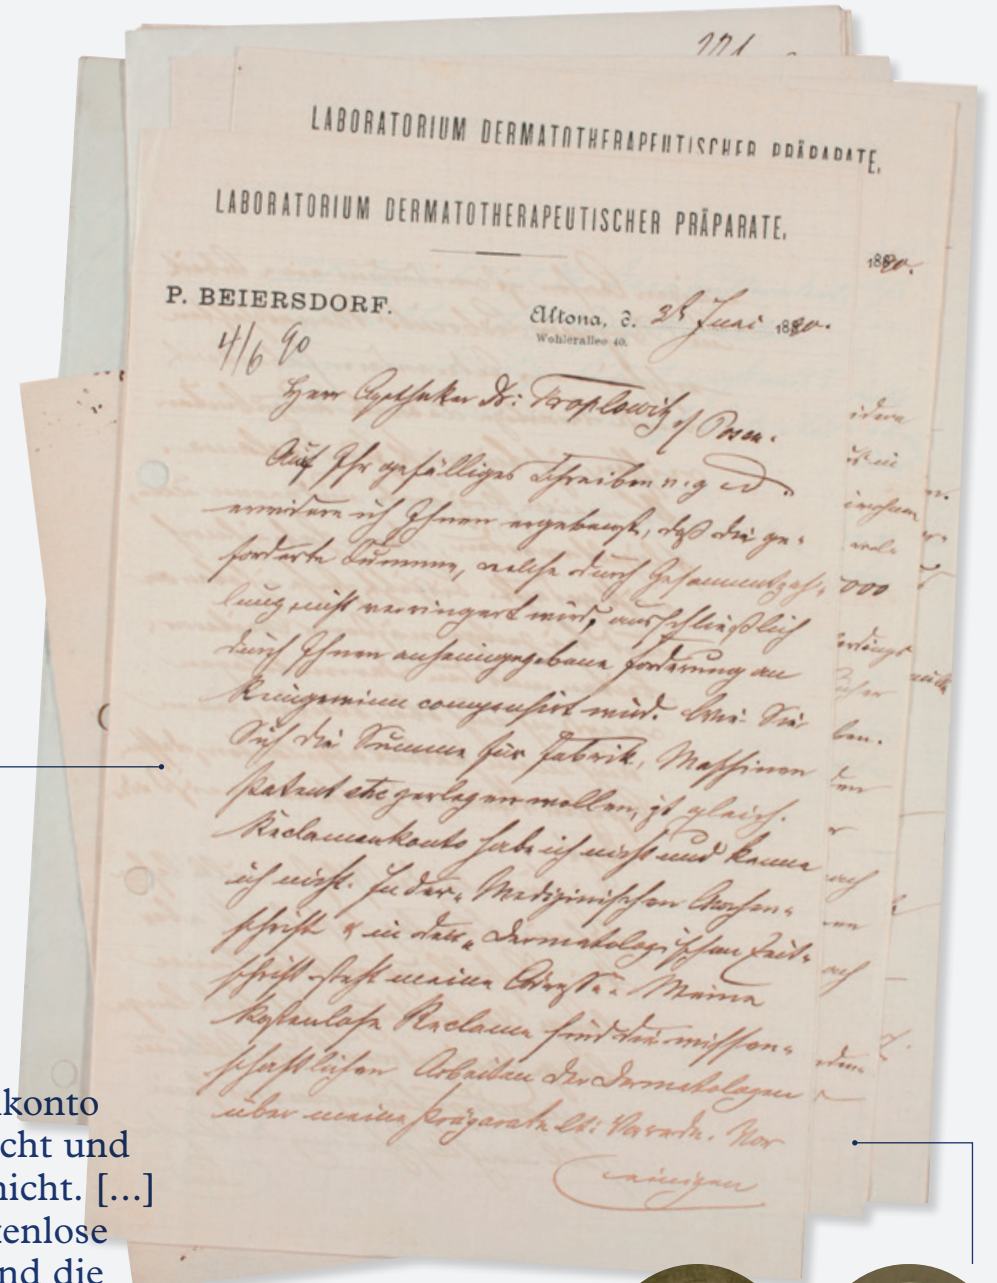 LABORATORIUM DERMATOTHERAPEUTISCHER PRÄPARATE.
1890.
LABORATORIUM DERMATOTHERAPEUTISCHER PRÄPARATE.
P. BEIERSDORF.
Altona, d. Juni 1890.
Wohlerallee 40.
4/6 90
Herr Apotheker Dr: Troplowitz Posen.
Auf Ihr gefälliges Schreiben
erwidere ich Ihnen ergebenst, daß die ge-
forderte Summe, welche durch Gesammtzah-
lung nicht verringert wird, ausschließlich
durch Ihnen anheimgegebene Forderung an
Reingewinn compensirt wird. Wie Sie
Sich die Summe für Fabrik, Maschinen
Patent etc zerlegen wollen, ist gleich.
Reclamenkonto habe ich nicht und kenne
ich nicht. In der „Medizinischen Wochen-
schrift & in der „Dermatologischen Zeit-
schrift steht meine Adresse. Meine
kostenlose Reclame sind die wissen-
schaftlichen Arbeiten der Dermatologen
über meine Präparate Vor
einigen
000
ben.
konto
cht und
nicht. [...]
tenlose
nd die